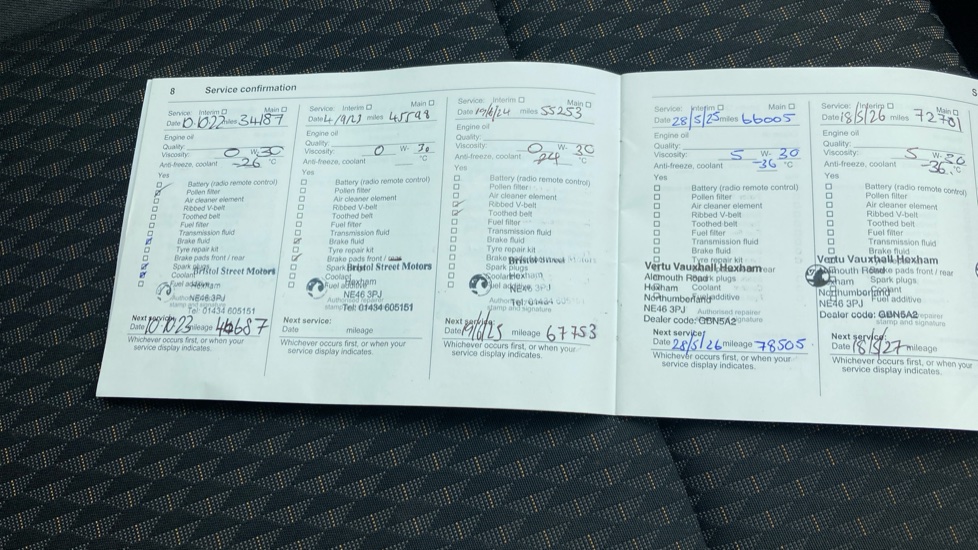 8 Service confirmation
Service: Interim Main
Date miles 34187
Engine oil
Quality:
Viscosity: 0 W- 30
Anti-freeze, coolant -26 °C
Yes
Battery (radio remote control)
Pollen filter
Air cleaner element
Ribbed V-belt
Toothed belt
Fuel filter
Transmission fluid
Brake fluid
Tyre repair kit
Brake pads front / rear
Spark plugs Bristol Street Motors
Coolant
Fuel additive Hexham
NE46 3PJ
Authorised
stamp and signature
Tel: 01434 605151
Next service:
Date mileage
Whichever occurs first, or when your
service display indicates.
Service: Interim Main
Date 4/9/23 miles 45598
Engine oil
Quality:
Viscosity: 0 W- 30
Anti-freeze, coolant °C
Yes
Battery (radio remote control)
Pollen filter
Air cleaner element
Ribbed V-belt
Toothed belt
Fuel filter
Transmission fluid
Brake fluid
Tyre repair kit
Brake pads front / rear
Spark Bristol Street Motors
Coolant
Fuel additive Hexham
NE46 3PJ
Authorised repairer
stamp Tel: 01434 605151
Next service:
Date mileage
Whichever occurs first, or when your
service display indicates.
Service: Interim Main
Date 19/6/24 miles 55253
Engine oil
Quality:
Viscosity: 0 W- 30
Anti-freeze, coolant °C
Yes
Battery (radio remote control)
Pollen filter
Air cleaner element
Ribbed V-belt
Toothed belt
Fuel filter
Transmission fluid
Brake fluid
Tyre repair kit
Brake Bristol Street Motors
Spark plugs
Coolant Hexham
Fuel NE46 3PJ
Tel: 01434
stamp and signature
Next service:
Date 19/6/25 mileage 67753
Whichever occurs first, or when your
service display indicates.
Service: Interim Main
Date 28/5/25 miles 66005
Engine oil
Quality:
Viscosity: 5 W- 30
Anti-freeze, coolant -36 °C
Yes
Battery (radio remote control)
Pollen filter
Air cleaner element
Ribbed V-belt
Toothed belt
Fuel filter
Transmission fluid
Brake fluid
Tyre repair kit
Vertu Vauxhall Hexham rear
Alemouth Road plugs
Hexham Coolant
Northumberland additive
NE46 3PJ Authorised repairer
Dealer code: GBN5A2 signature
Next service:
Date 28/5/26 mileage 78505
Whichever occurs first, or when your
service display indicates.
Service: Interim Main
Date 18/5/26 miles
Engine oil
Quality:
Viscosity: 5 W- 30
Anti-freeze, coolant 36 °C
Yes
Battery (radio remote control)
Pollen filter
Air cleaner element
Ribbed V-belt
Toothed belt
Fuel filter
Transmission fluid
Brake fluid
Vertu Vauxhall Hexham
Alemouth Road Brake pads front / rear
Hexham Spark plugs
Northumberland Coolant
NE46 3PJ Fuel additive
Dealer code: GBN5A2 repairer
stamp and signature
Next service:
Date 18/5/27 mileage
Whichever occurs first, or when your
service display indicates.